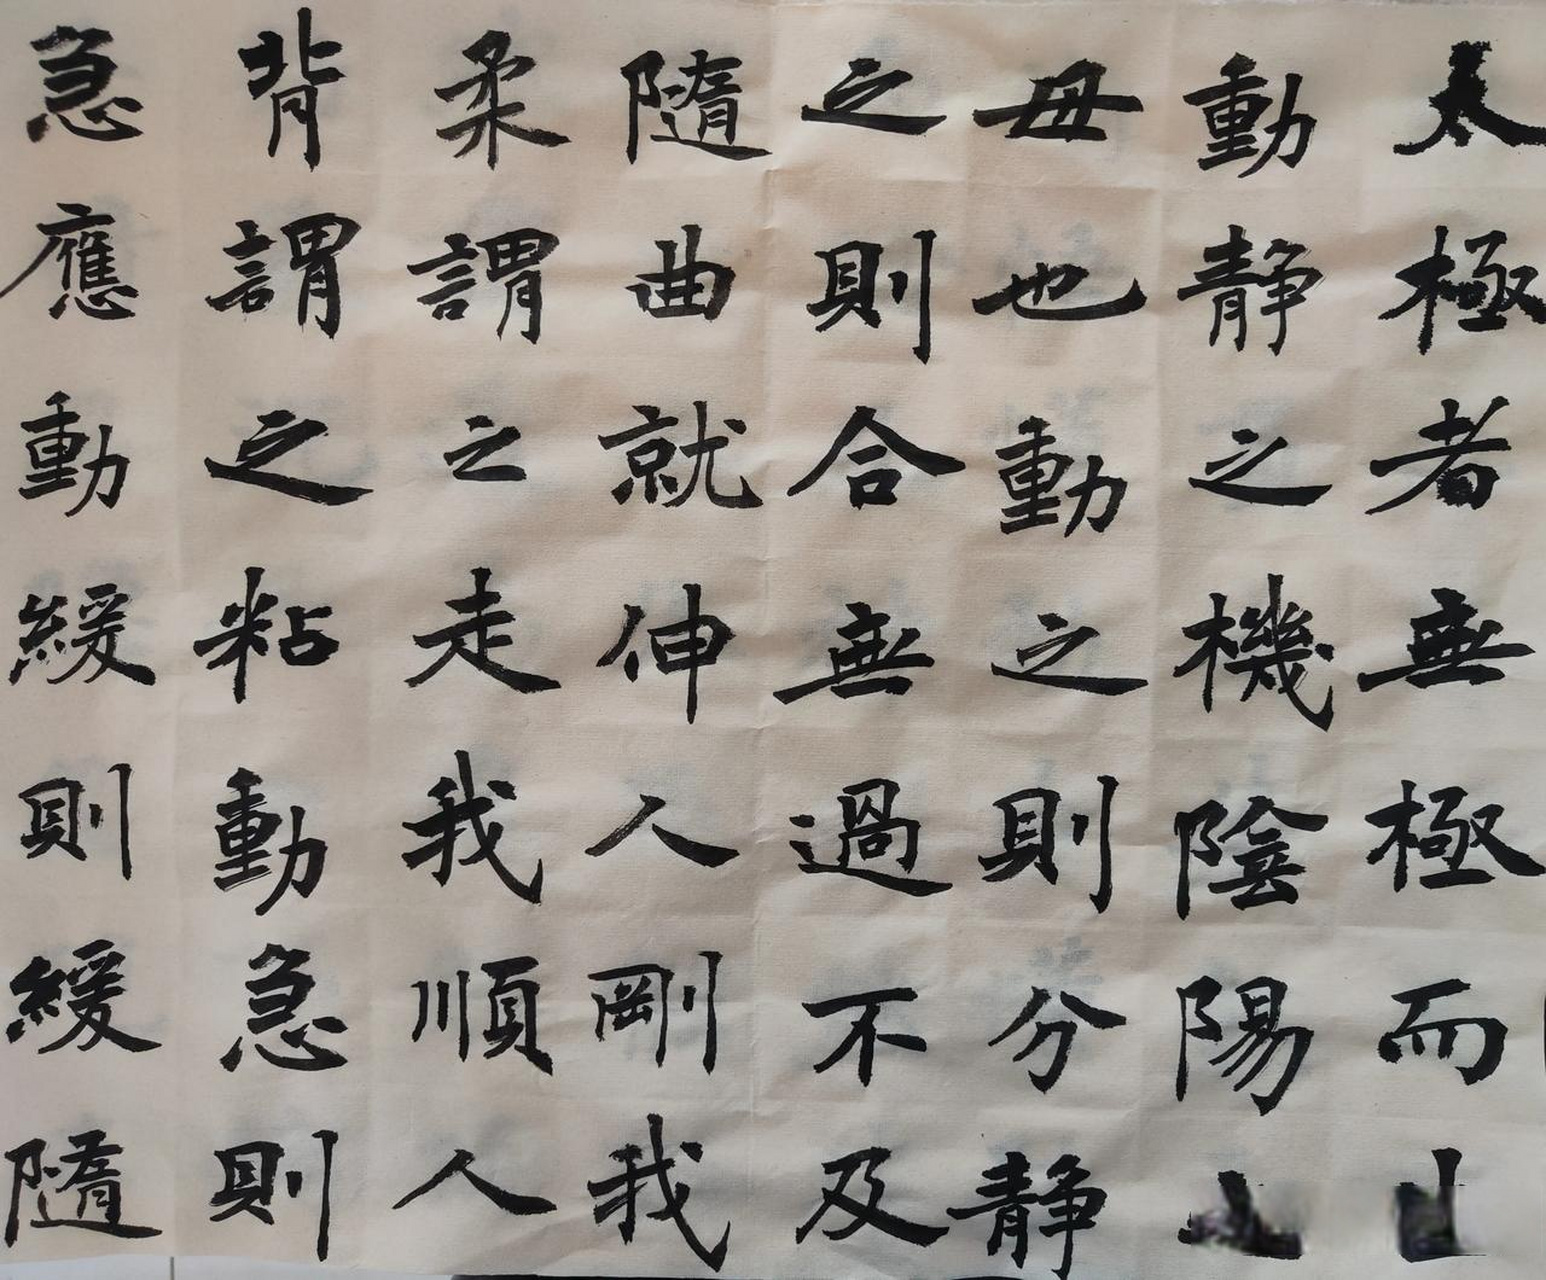 太極者無極而
動静之機陰陽
母也動之則分静
之則合無過不及
隨曲就伸人剛我
柔謂之走我順人
背謂之粘動急則
急應動緩則緩隨